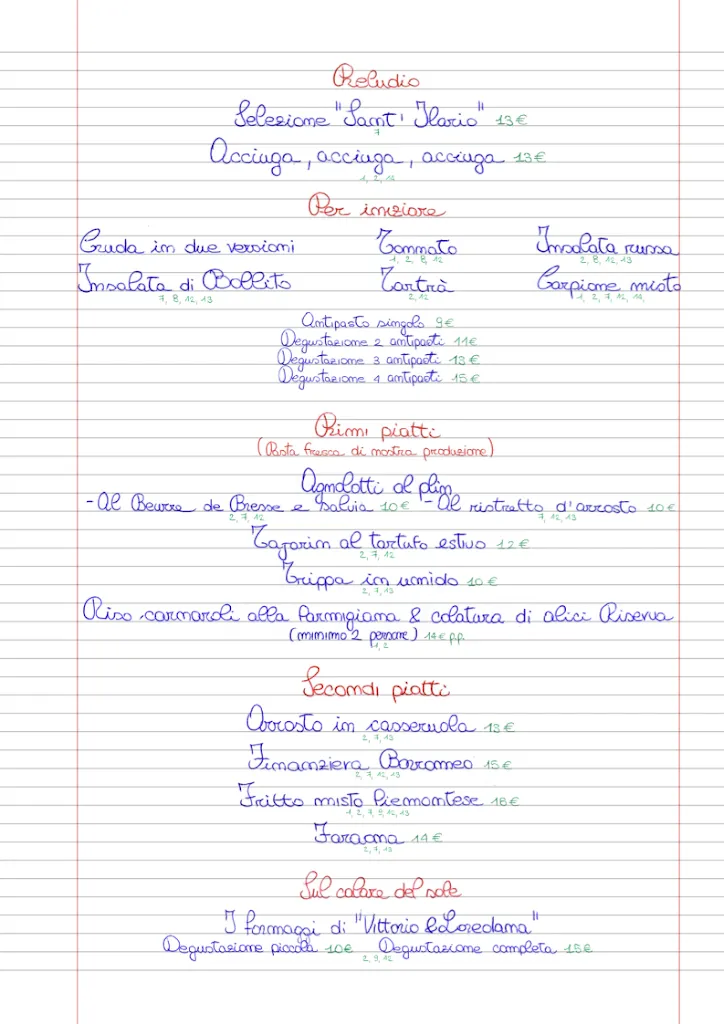 Preludio
Selezione "Sant' Ilario" 13€
7
Acciuga, acciuga, acciuga 13€
1, 2, 14
Per iniziare
Cruda in due versioni Tonnato Insalata russa
1, 2, 8, 12 2, 8, 12, 13
Insalata di Bollito Tartrà Carpione misto
7, 8, 12, 13 2, 12 1, 2, 7, 12, 14,
Antipasto singolo 9€
Degustazione 2 antipasti 11€
Degustazione 3 antipasti 13€
Degustazione 4 antipasti 15€
Primi piatti
(Pasta fresca di nostra produzione)
Agnolotti al plin
-Al Beurre de Bresse e salvia 10€ -Al ristretto d'arrosto 10€
2, 7, 12 7, 12, 13
Tajarin al tartufo estivo 12€
2, 7, 12
Trippa in umido 10€
2, 7, 13
Riso carnaroli alla Parmigiana & colatura di alici Riserva
(minimo 2 persone) 14€ p.p.
1, 2
Secondi piatti
Arrosto in casseruola 13€
2, 7, 13
Finanziera Borromeo 15€
2, 7, 12, 13
Fritto misto Piemontese 18€
1, 2, 7, 9, 12, 13
Faraona 14€
2, 7, 13
Sul calare del sole
I formaggi di "Vittorio & Loredana"
Degustazione piccola 10€ Degustazione completa 15€
2, 9, 12